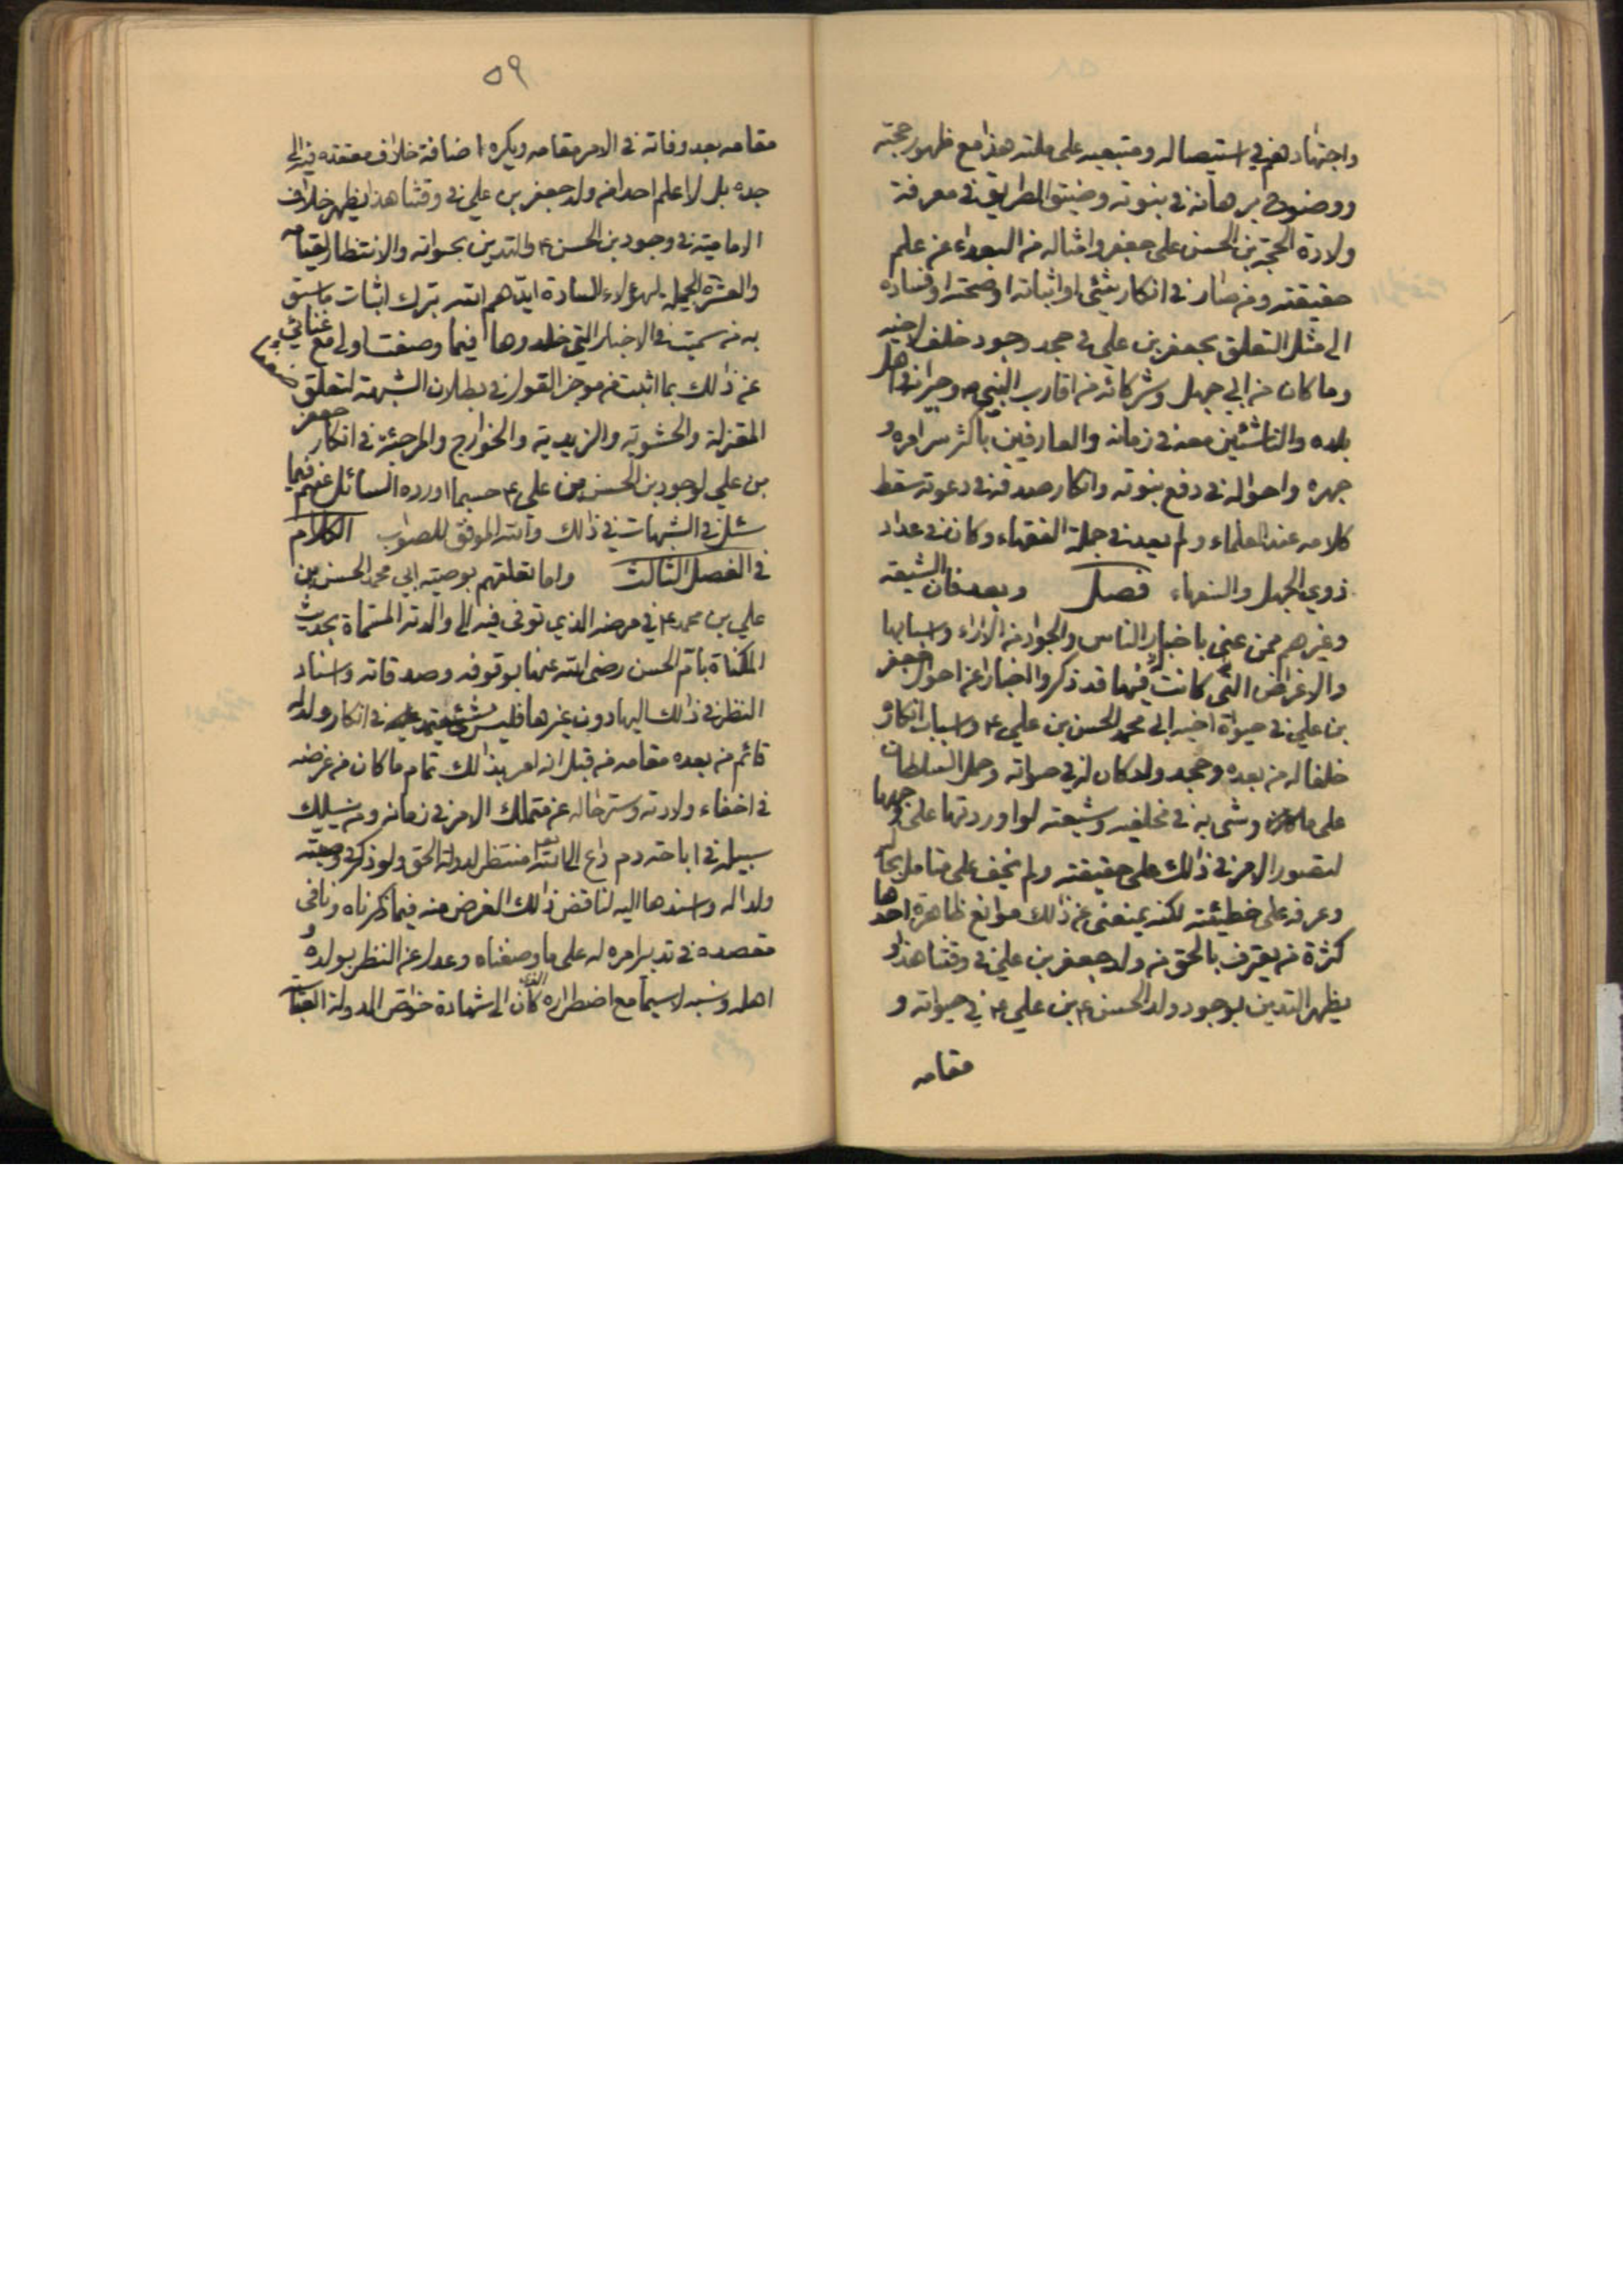 واجتهادهم في استيصاله ومتبعيه على ملته هذا مع ظهور حجته
ووضوح برهانه في بنوته وضيق الطريق في معرفة
ولادة الحجة بن الحسن على جعفر وامثاله من البعداء عن علم
حقيقته ومن صار في انكار شئ او اثباته او صحته او فساده
الى مثل التعلق بجعفر بن علي في جحد وجود خلف لاخيه
وما كان من ابي جهل وشركائه من اقارب النبي ص وجيرانه واهل
بلده والناشئين معه في زمانه والعارفين باكثر سر امره و
جهره واحواله في دفع بنوته وانكار صدقه في دعوته سقط
كلامه عند العلماء ولم يعد في جملة الفقهاء وكان في عداد
ذوي الجهل والسفهاء فصل وبعد فان الشيعه
وغيرهم ممن عنى باخبار الناس والجواد من الاراء واسبابها
والاغراض التي كانت فيها قد ذكروا اخبارا عن احوال جعفر
بن علي في حيوة اخيه ابي محمد الحسن بن علي ع واسباب انكاره
خلفا له من بعده وجحد ولد كان له في حيواته وحمل السلطان
على ما وشى به في مخلفيه وشيعته لو اوردتها على وجهها
لتصور الامر في ذلك على حقيقته ولم يخف على متامل بحاله
وعرفه على خطيئته لكنه يمنعنى عن ذلك موانع ظاهرة احدها
كثرة من يعترف بالحق من ولد جعفر بن علي في وقتنا هذا و
يظهر التدين بوجود ولد الحسن ع بن علي ع في حيواته و
مقامه
٥٩
مقامه بعد وفاته في الامر مقامه ويكره اضافة خلاف معتقده فيه الى
جده بل لا اعلم احدا من ولد جعفر بن علي في وقتنا هذا يظهر خلاف
الامامية في وجود بن الحسن ع والتدين بحيواته والانتظار لقيامه
والعشرة الجميلة لهؤلاء السادة ايدهم الله بترك اثبات ما سبق
به من سميت في الاخبار التي خلدوها فيما وصفت اولى مع غنائي
عن ذلك بما اثبت من موجز القول في بطلان الشبهة لتعلق ضعفاء
المعتزلة والحشوية والزيدية والخوارج والمرجئة في انكار جعفر
بن علي لوجود بن الحسن بن علي ع حسبما اورده السائل عنهم فيما
سئل في الشبهات في ذلك والله الموفق للصواب الكلام
في الفصل الثالث واما تعلقهم بوصية ابي محمد الحسن بن
علي بن محمد ع في مرضه الذي توفى فيه الى والدته المسماة بحديث
المكناة بام الحسن رضى الله عنها بوقوفه وصدقاته واسناد
النظر في ذلك اليها دون غيرها فليس بشئ يعتمد عليه في انكار ولد له
قائم من بعده مقامه من قبل انه امر بذلك تمام ما كان من غرضه
في اخفاء ولادته وستر حاله عن متملك الامر في زمانه ومن يسلك
سبيله في اباحته دم داع الى الله تعالى منتظر لدولة الحق ولو ذكر في وصيته
ولدا له واسندها اليه لناقض ذلك الغرض منه فيما ذكرناه ونافى
مقصده في تدبير امره له على ما وصفناه وعدل عن النظر بولده و
اهله ونسبه لا سيما مع اضطراره الذي كان الى شهادة خواص الدولة العباسية